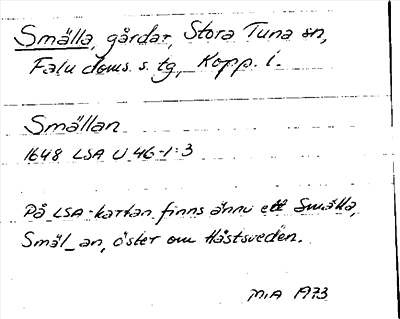 Smälla, gårdar, Stora Tuna sn,
Falu doms. s. tg, Kopp. l.
Smällan
1648 LSA U 46-1:3
På LSA-kartan finns ännu ett Smälla,
Smäl_an, öster om Hästsveden.
M.A 1973